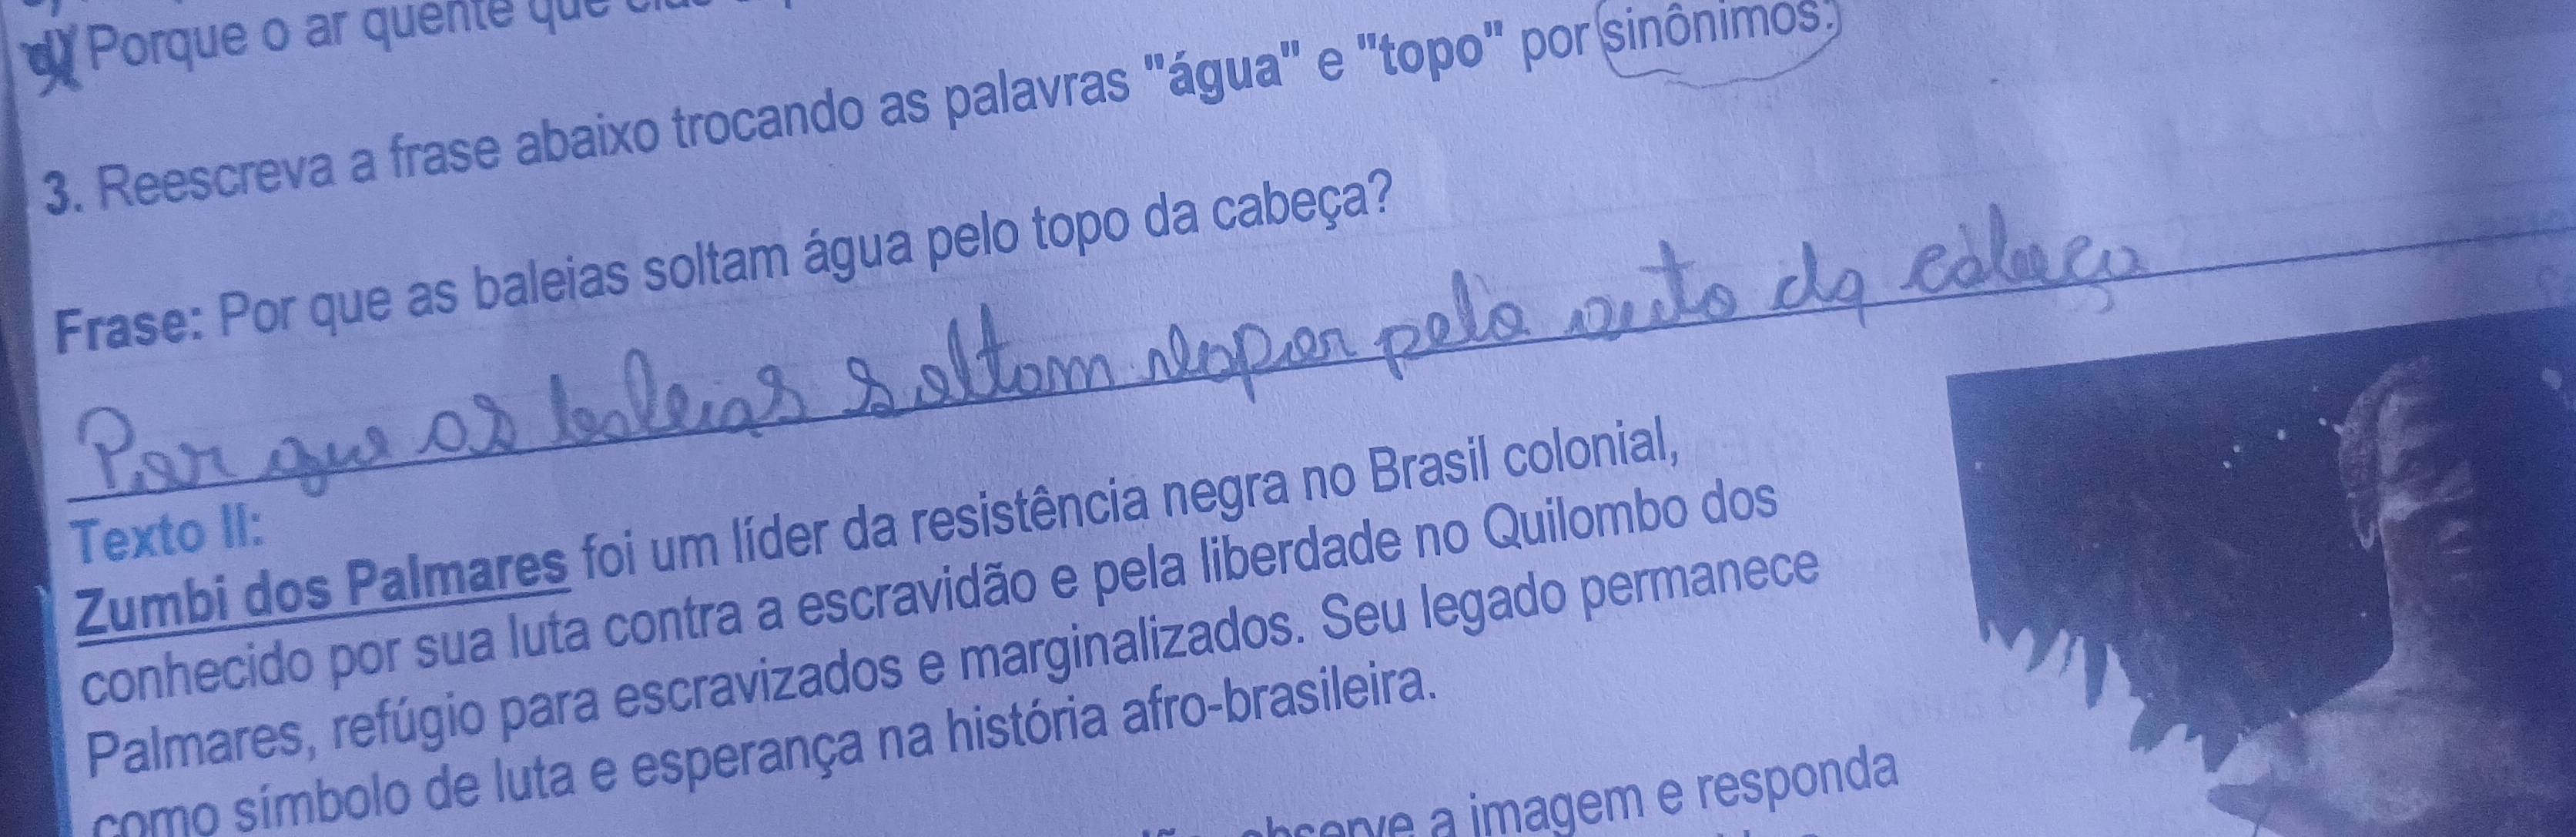 d) Porque o ar quente que
3. Reescreva a frase abaixo trocando as palavras "água" e "topo" por sinônimos.
Frase: Por que as baleias soltam água pelo topo da cabeça?
Por que as baleias soltam vapor pelo auto da cabeça
Texto II:
Zumbi dos Palmares foi um líder da resistência negra no Brasil colonial,
conhecido por sua luta contra a escravidão e pela liberdade no Quilombo dos
Palmares, refúgio para escravizados e marginalizados. Seu legado permanece
como símbolo de luta e esperança na história afro-brasileira.
observe a imagem e responda